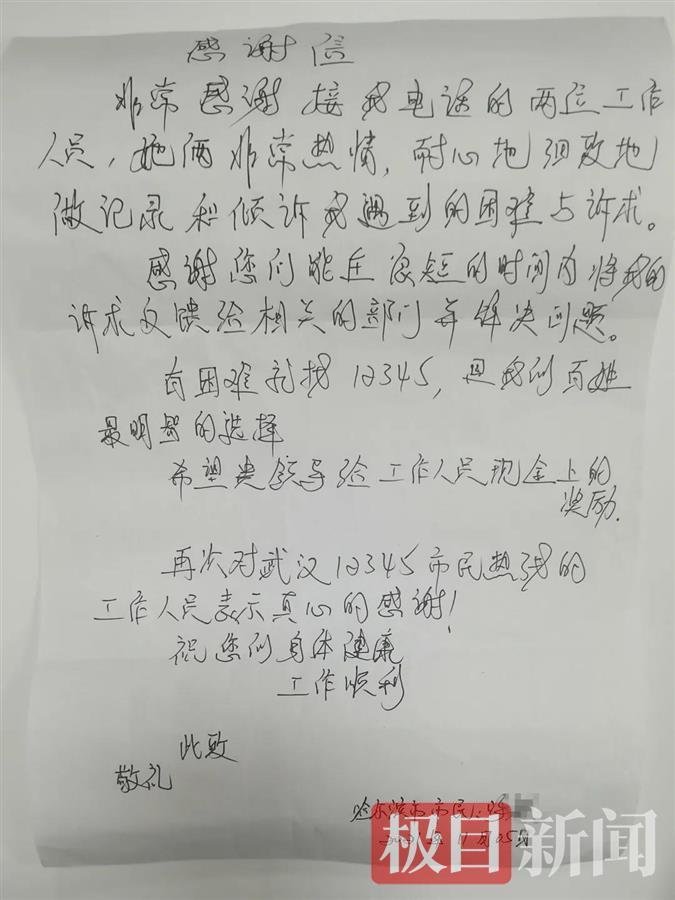 感谢信
非常感谢接我电话的两位工作
人员，她俩非常热情，耐心地细致地
做记录和倾诉我遇到的困难与诉求。
感谢您们能在很短的时间内将我的
诉求反馈给相关的部门并解决问题。
有困难就找12345，是我们百姓
最明智的选择
希望贵领导给工作人员现金上的
奖励.
再次对武汉12345市民热线的
工作人员表示真心的感谢！
祝您们身体健康
工作顺利
此致
敬礼
哈尔滨市市民：
11月05日
极目新闻